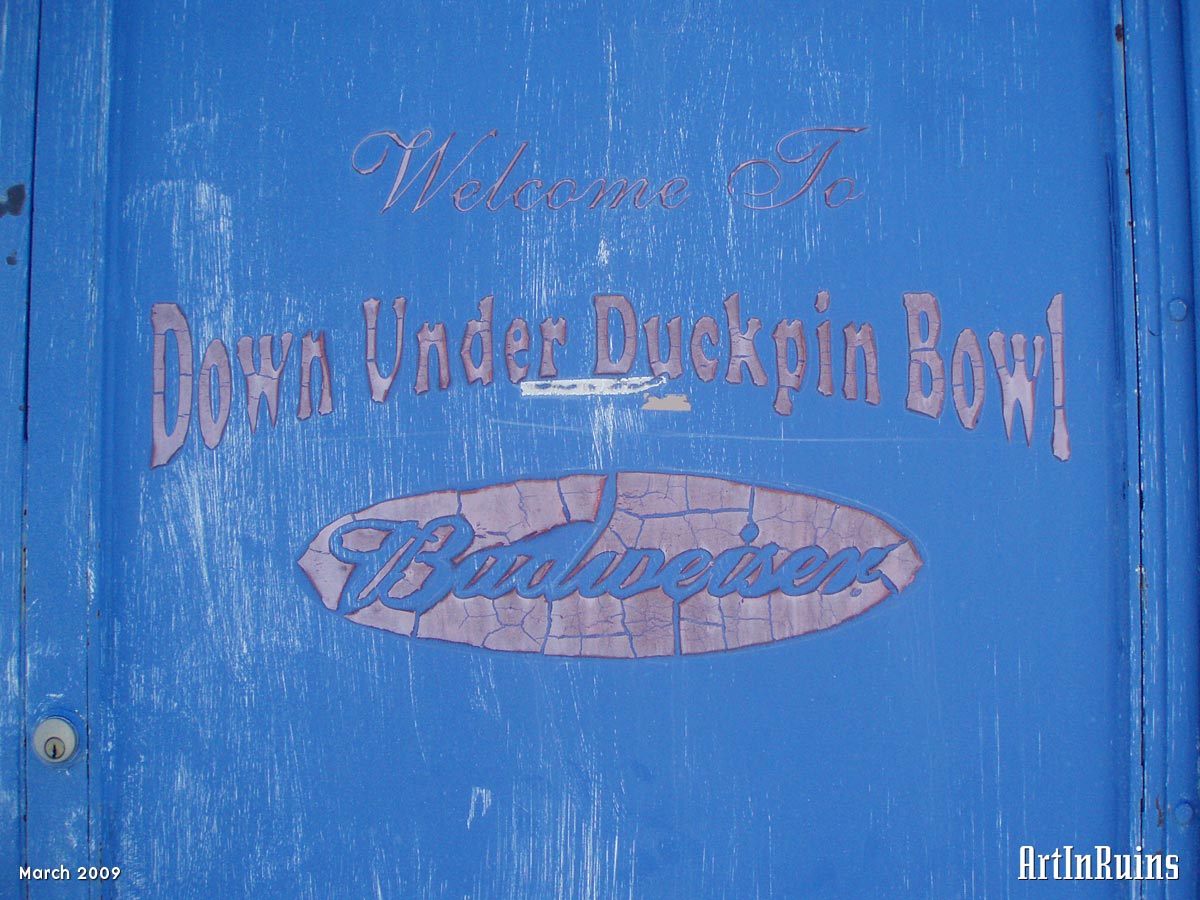 Welcome To
Down Under Duckpin Bowl
Budweiser
March 2009
ArtInRuins